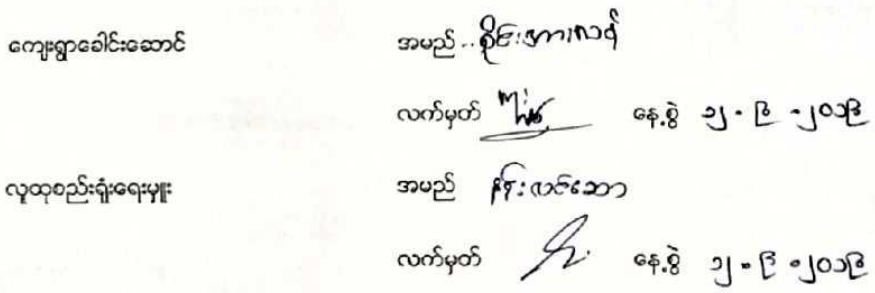 ကျေးရွာခေါင်းဆောင် အမည် .. စိုင်းအားလတ်
လက်မှတ် နေ့စွဲ ၁၂ - ၉ - ၂၀၁၉
လူထုစည်းရုံးရေးမှူး အမည် နန်းလင်သော
လက်မှတ် နေ့စွဲ ၁၂ - ၉ - ၂၀၁၉